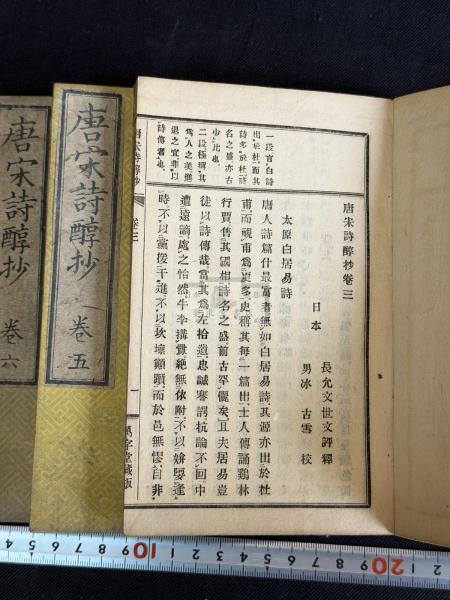 唐宋詩醇抄卷三
日本 長允文世文評釋
男冰 古雪 校
太原白居易詩
唐人詩篇什最富者無如白居易詩其源亦出於杜
甫而視甫爲更多史稱其每一篇出士人傳誦雞林
行賈售其國相詩名之盛前古罕儷矣且夫居易豈
徒以詩傳哉當其爲左拾遺忠誠謇諤抗論不回中
遭遠謫處之怡然牛李搆釁絕無依附不以媕娿逢
時不以黨援干進不以坎壈顚躓而於邑無憀自非
一段言白詩
出於杜而其
詩多於杜詩
名之盛亦古
少比也
二段極稱其
爲人之美進
退之宜非以
詩傳者也
唐宋詩醇抄 卷三 一 萬字堂藏版
唐宋詩醇抄 卷五
唐宋詩醇抄 卷六
10 9 8 7 6 5 4 3 2 1 10 9 8 7 6 5 4 3 2 1 20 9 8